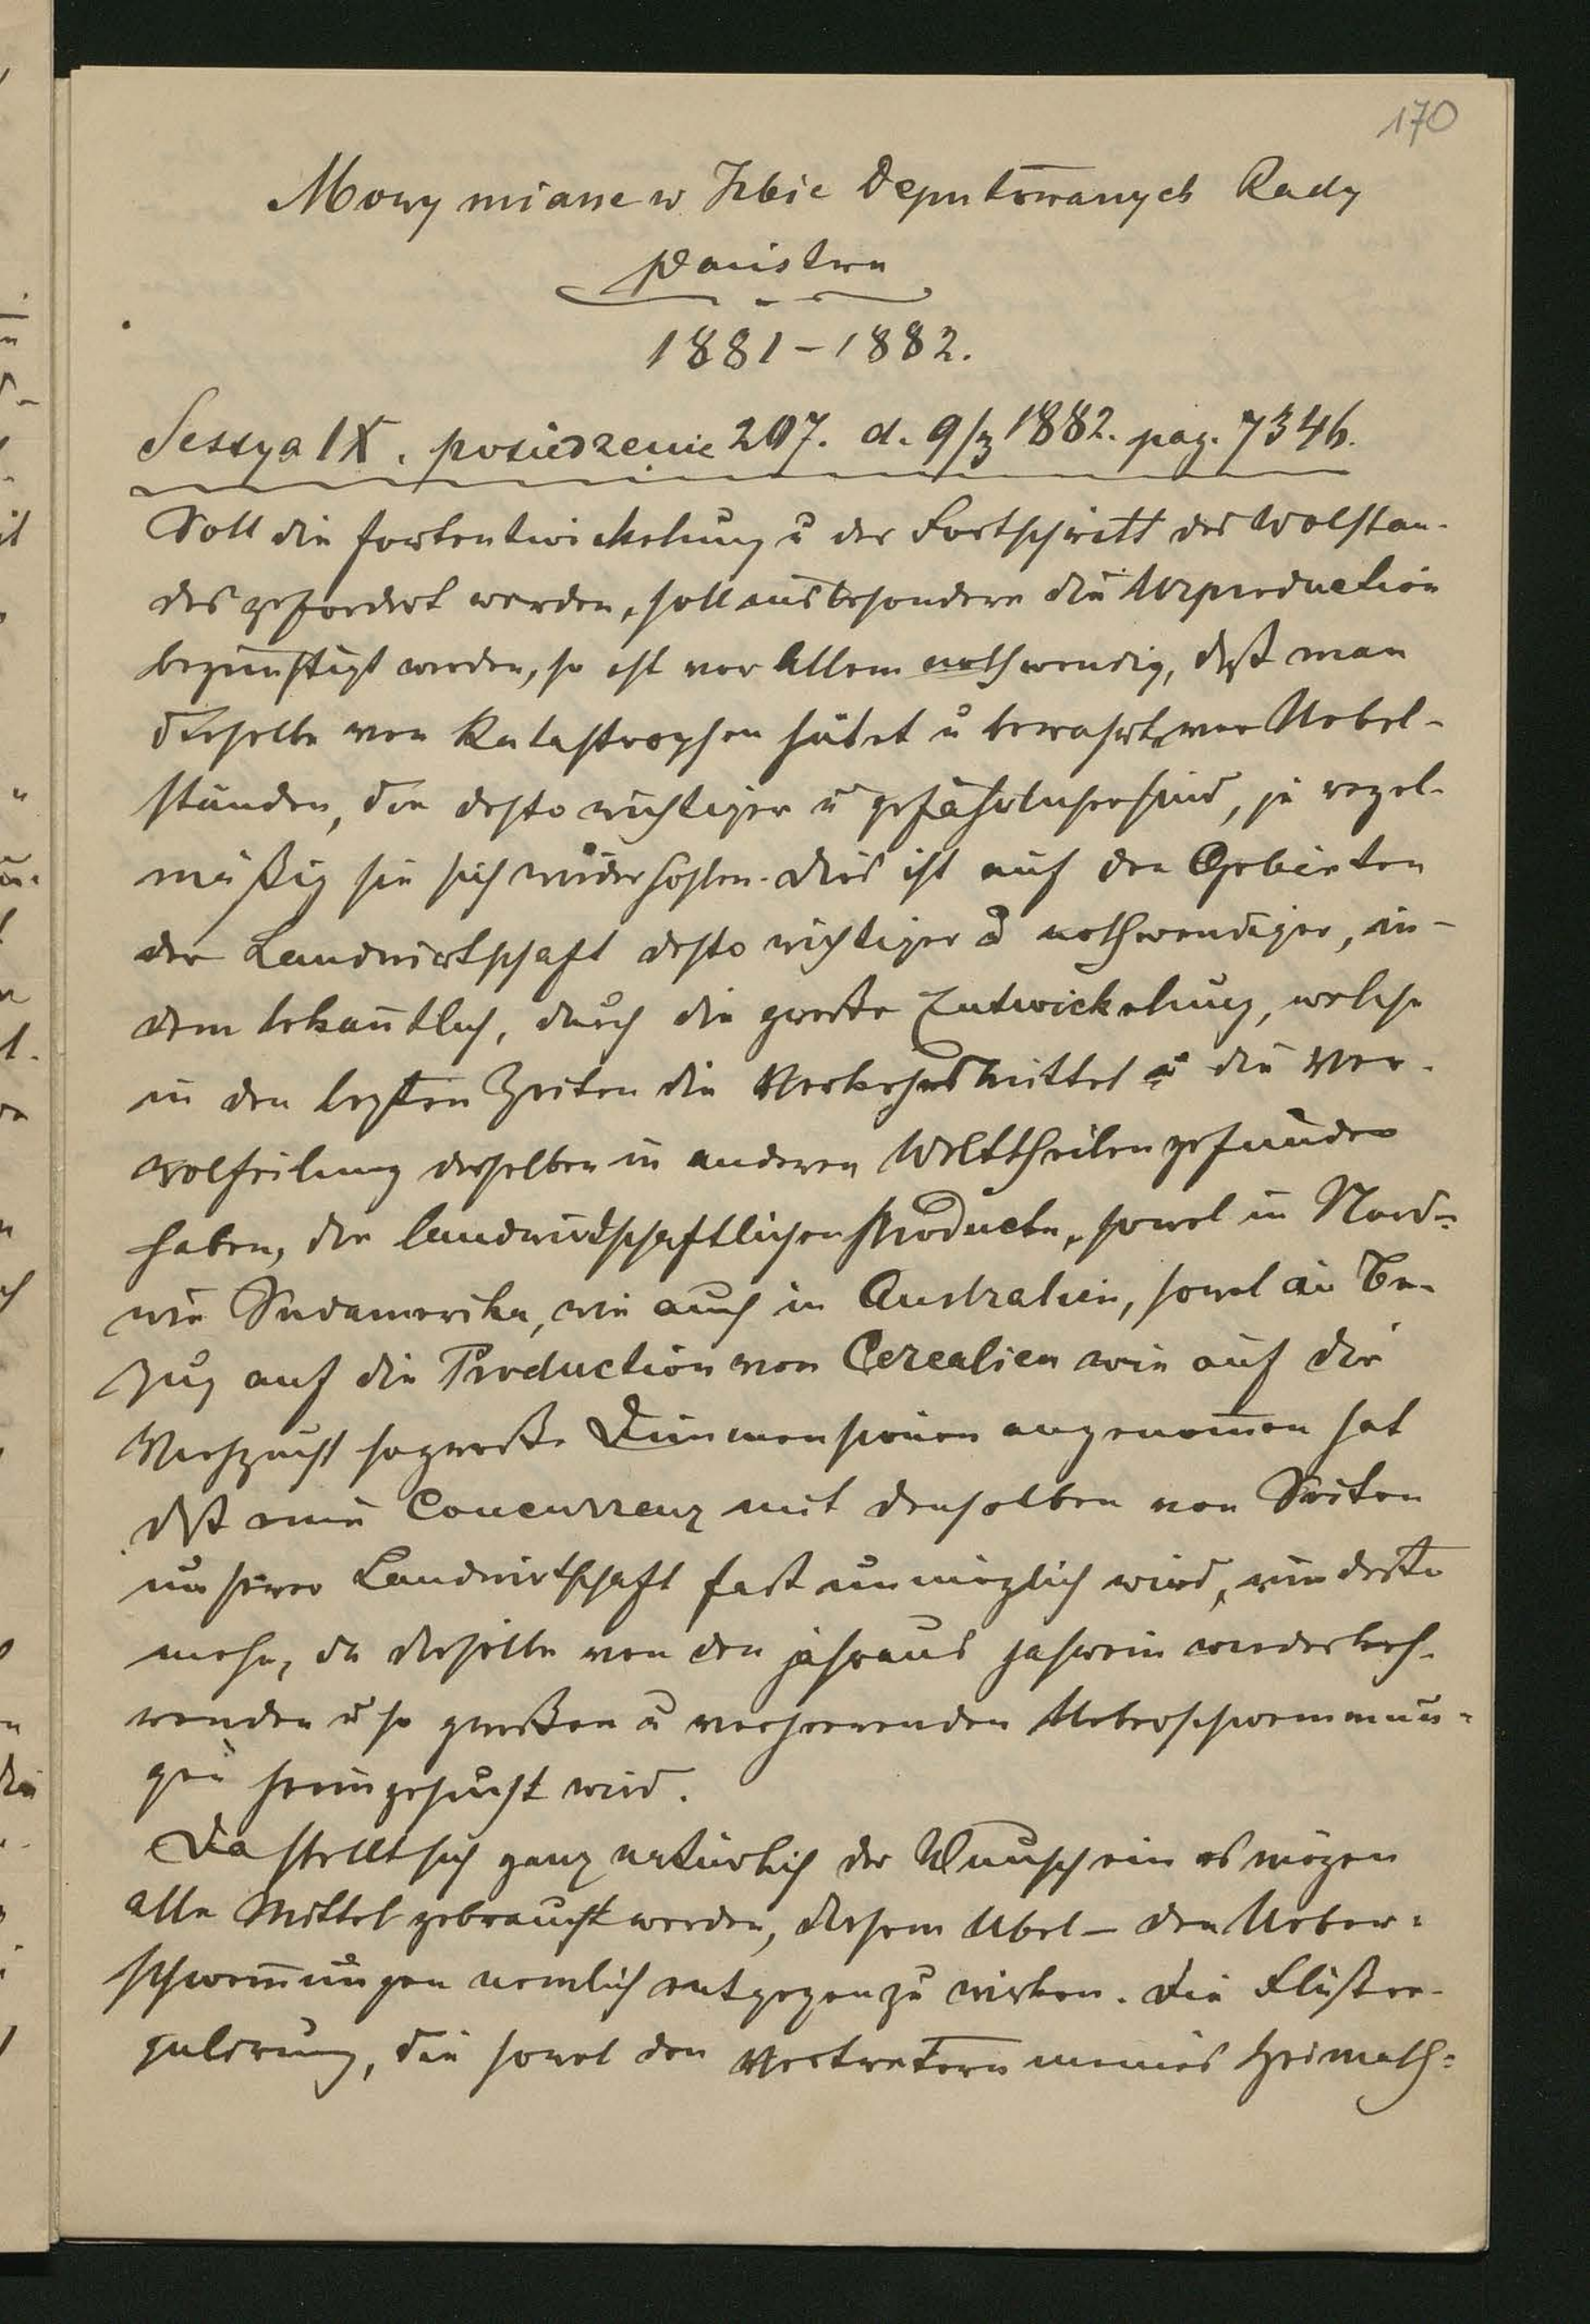 170
Mowy miane w Izbie Deputowanych Rady
państwa
1881–1882.
Sessya IX. posiedzenie 207. d. 9/3 1882. pag. 7346.
Soll die Fortentwickelung u der Fortschritt des Wolstan-
des gefordert werden, soll insbesondere die Urproduction
begünstigt werden, so ist vor Allem nothwendig, daß man
dieselbe von Katastrophen hütet u bewahrt, vor Uebel-
ständen, die desto wichtiger u gefährlicher sind, je regel-
mäßig sie sich wiederhohlen. Dies ist auf den Gebieten
der Landwirtschaft desto wichtiger u nothwendiger, in-
dem bekantlich, durch die große Entwickelung, welche
in den lezten Zeiten die Verkehrsmittel u die Ver-
wolfeilung derselben in anderen Welttheilen gefunden
haben, die landwirtschaftlichen Producte, sowol in Nord-
wie Südamerika, wie auch in Australien, sowol in Be-
zug auf die Production von Cerealien wie auf die
Viehzucht so große Dimmensionen angenomen hat
daß eine Concurrenz mit denselben von Seiten
unserer Landwirtschaft fast unmöglich wird, um desto
mehr, da dieselbe von den jahraus jahrein wiederkeh-
renden u so großen u verheerenden Ueberschwemmun-
gen heimgesucht wird.
Da stellt sich ganz natürlich der Wunsch ein es mögen
alle Mittel gebraucht werden, diesem Übel – den Ueber-
schwemungen nemlich entgegenzu wirken. Die Flußre-
gulirung, die sowol den Vertretern meines Heimath-